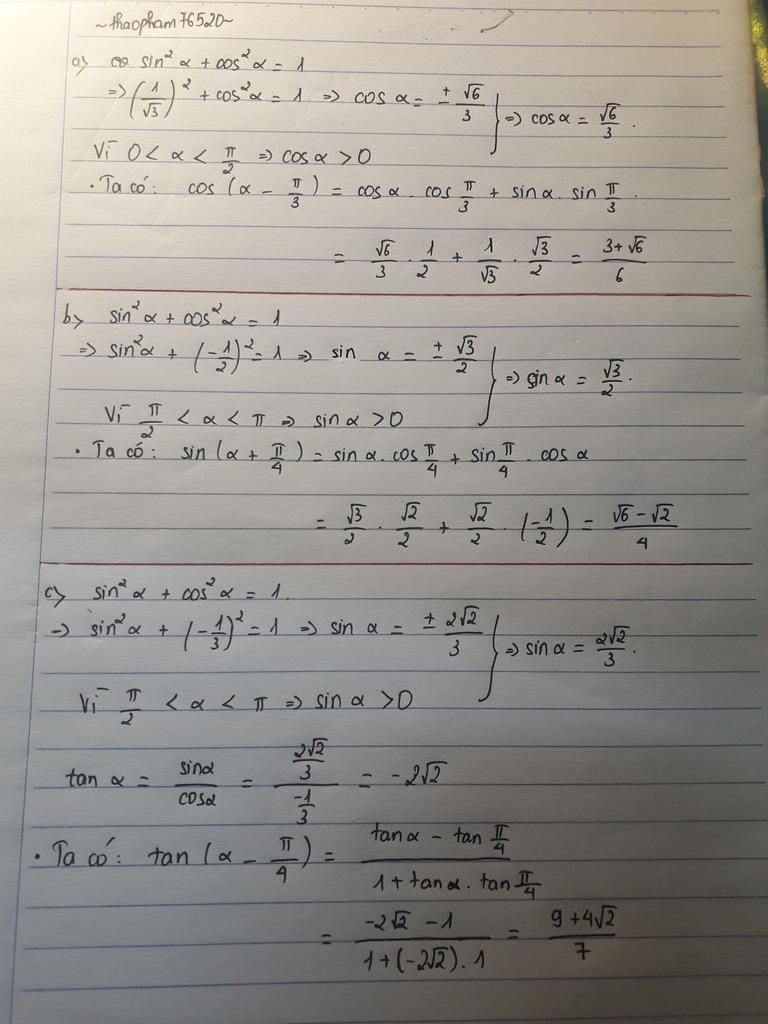 ~thaopham76520~
a) sin²α + cos²α = 1
=> (1/√3)² + cos²α = 1 => cos α = ± √6/3 } => cos α = √6/3.
Vì 0 < α < π/2 => cos α > 0
• Ta có: cos (α - π/3) = cos α . cos π/3 + sin α . sin π/3.
= √6/3 . 1/2 + 1/√3 . √3/2 = (3+√6)/6
b) sin²α + cos²α = 1
=> sin²α + (-1/2)² = 1 => sin α = ± √3/2 } => sin α = √3/2.
Vì π/2 < α < π => sin α > 0
• Ta có: sin (α + π/4) = sin α . cos π/4 + sin π/4 . cos α
= √3/2 . √2/2 + √2/2 . (-1/2) = (√6 - √2)/4
c) sin²α + cos²α = 1.
=> sin²α + (-1/3)² = 1 => sin α = ± 2√2/3 } => sin α = 2√2/3.
Vì π/2 < α < π => sin α > 0
tan α = sin α/cos α = (2√2/3)/(-1/3) = -2√2
• Ta có: tan (α - π/4) = (tan α - tan π/4)/(1 + tan α . tan π/4)
= (-2√2 - 1)/(1 + (-2√2) . 1) = (9 + 4√2)/7